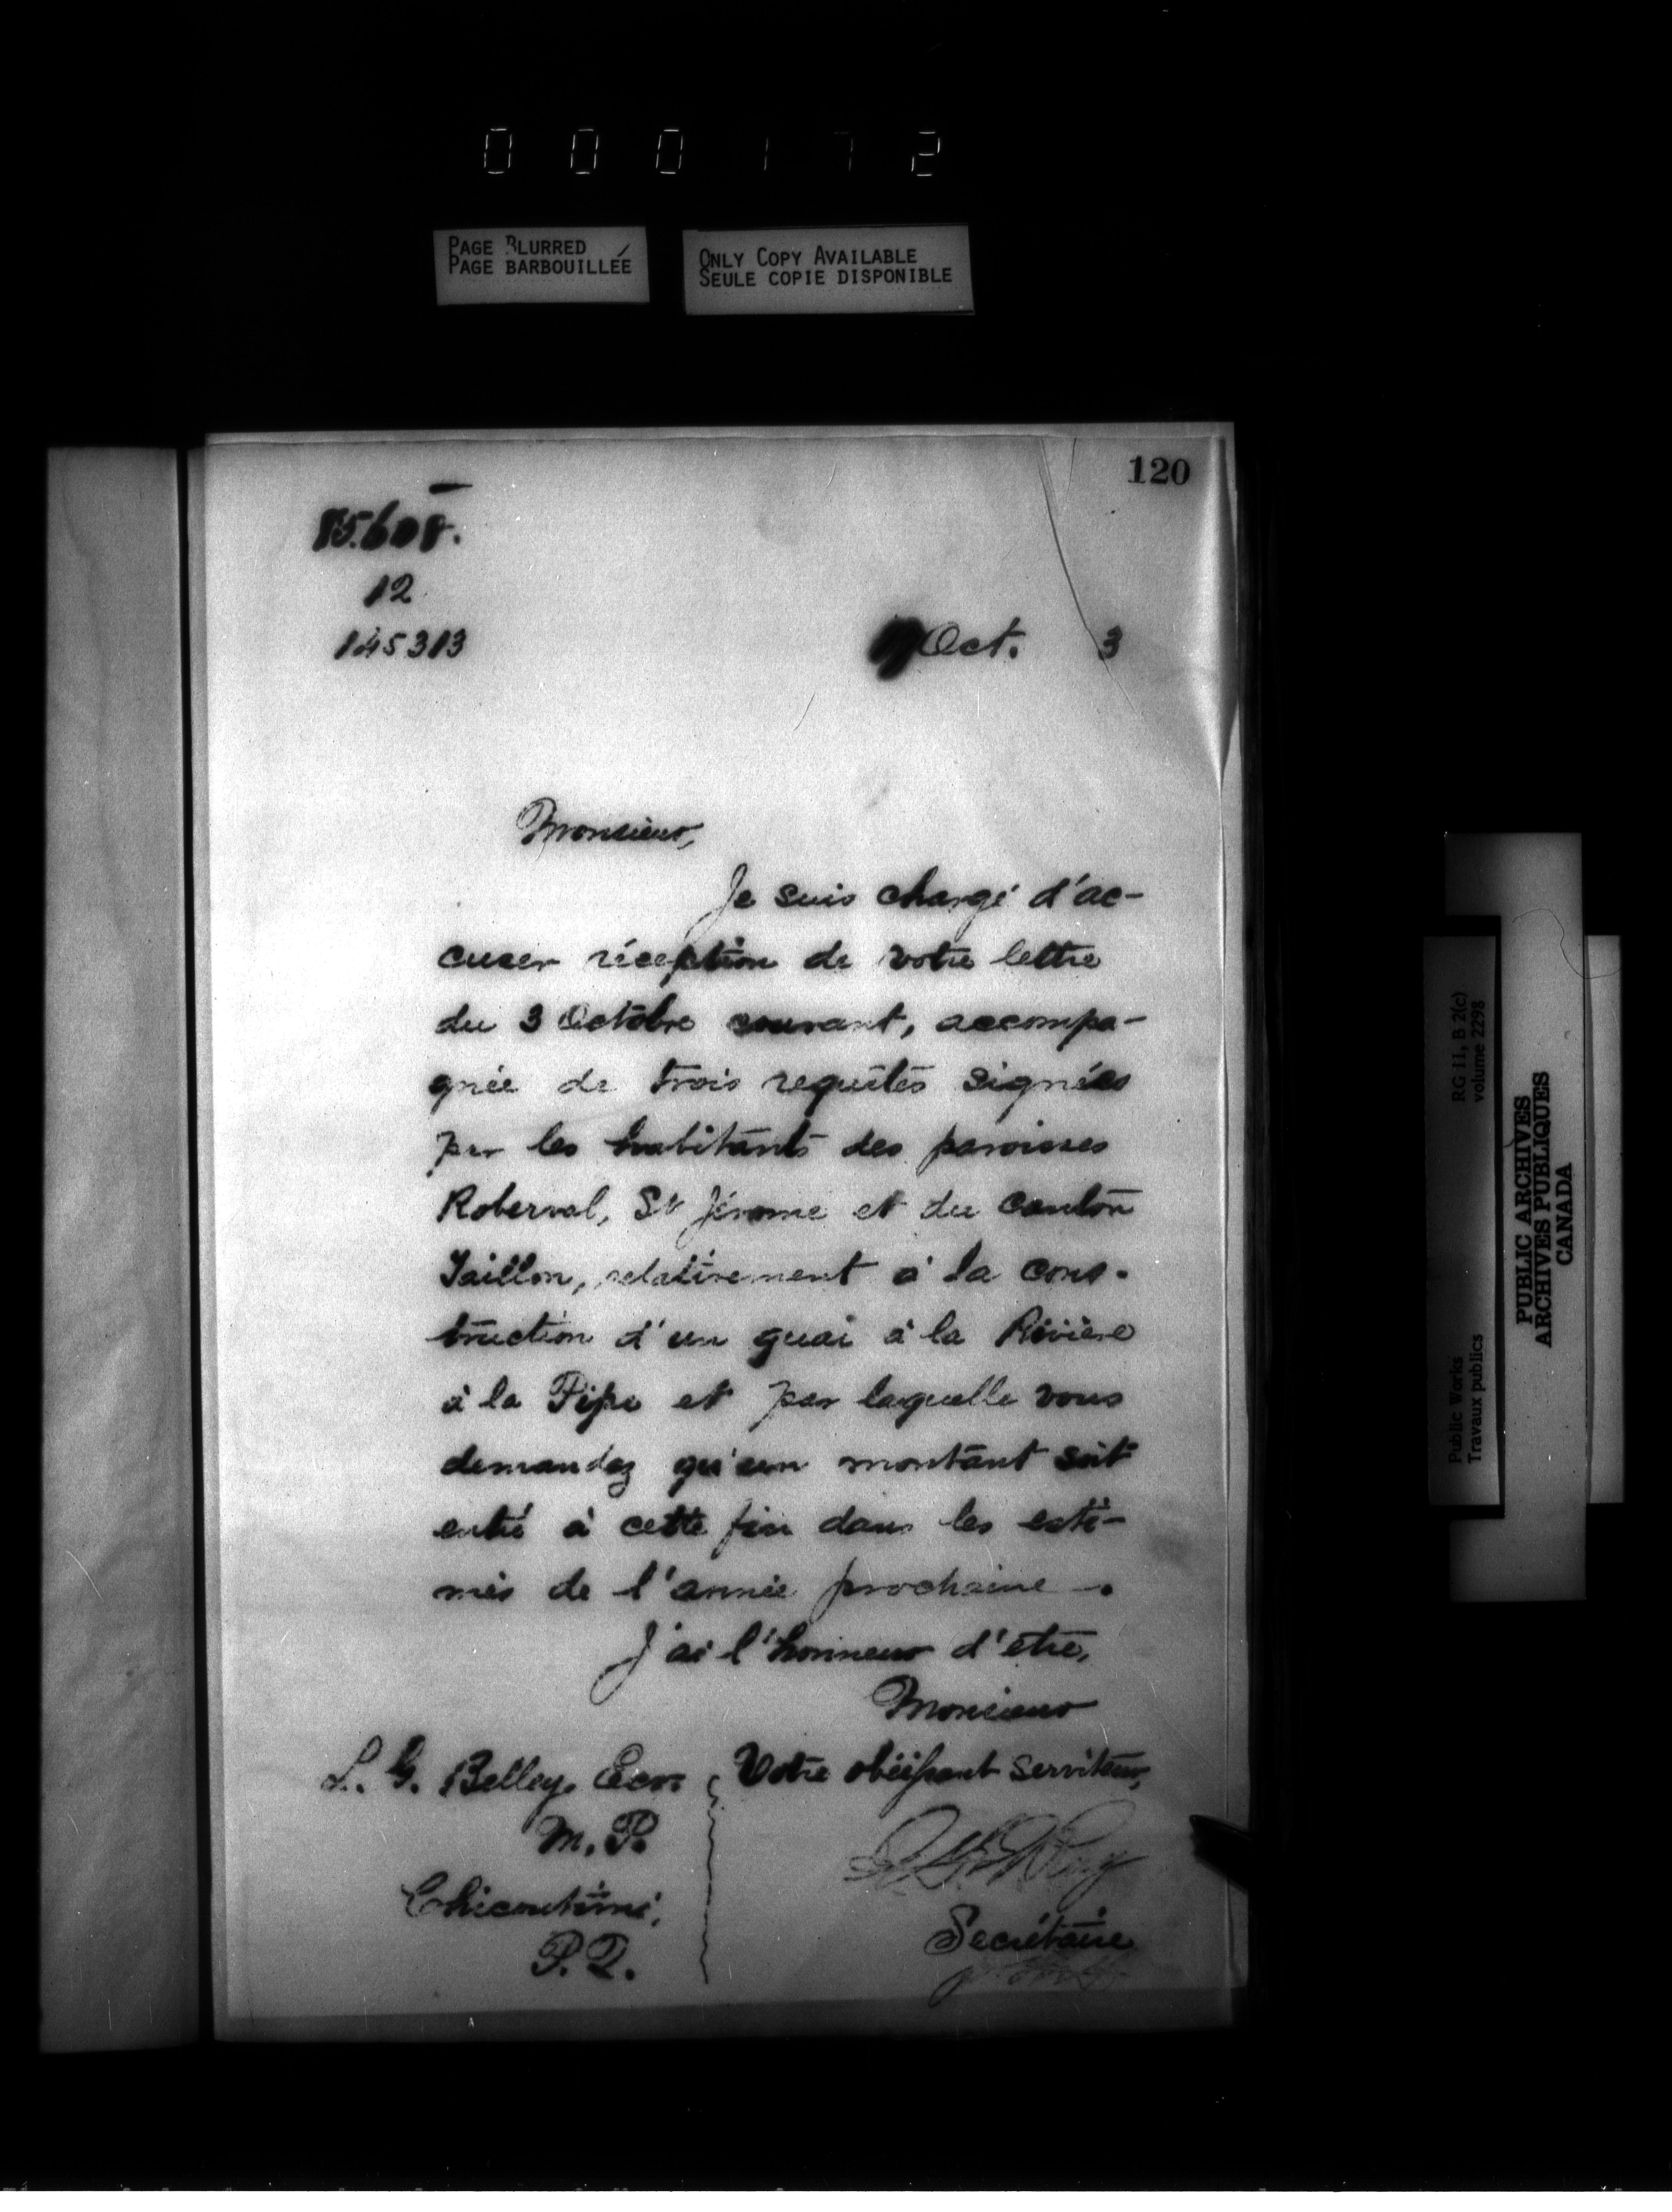 0 0 0 1 7 2
PAGE BLURRED
PAGE BARBOUILLÉE
ONLY COPY AVAILABLE
SEULE COPIE DISPONIBLE
120
12
145313
Oct. 3
Monsieur,
Je suis chargé d'ac-
cuser réception de votre lettre
du 3 Octobre courant, accompa-
gnée de trois requêtes signées
par les habitants des paroisses
Roberval, St Jérome et du canton
Taillon, relativement à la cons-
truction d'un quai à la Rivière
à la Pipe et par laquelle vous
demandez qu'un montant soit
entré à cette fin dans les esti-
més de l'année prochaine.
J'ai l'honneur d'être,
Monsieur
Votre obéissant serviteur,
Secrétaire
L. G. Belley, Ecr.
M.P.
Chicoutimi,
P.Q.
RG 11, B 2(c)
volume 2298
Public Works
Travaux publics
PUBLIC ARCHIVES
ARCHIVES PUBLIQUES
CANADA